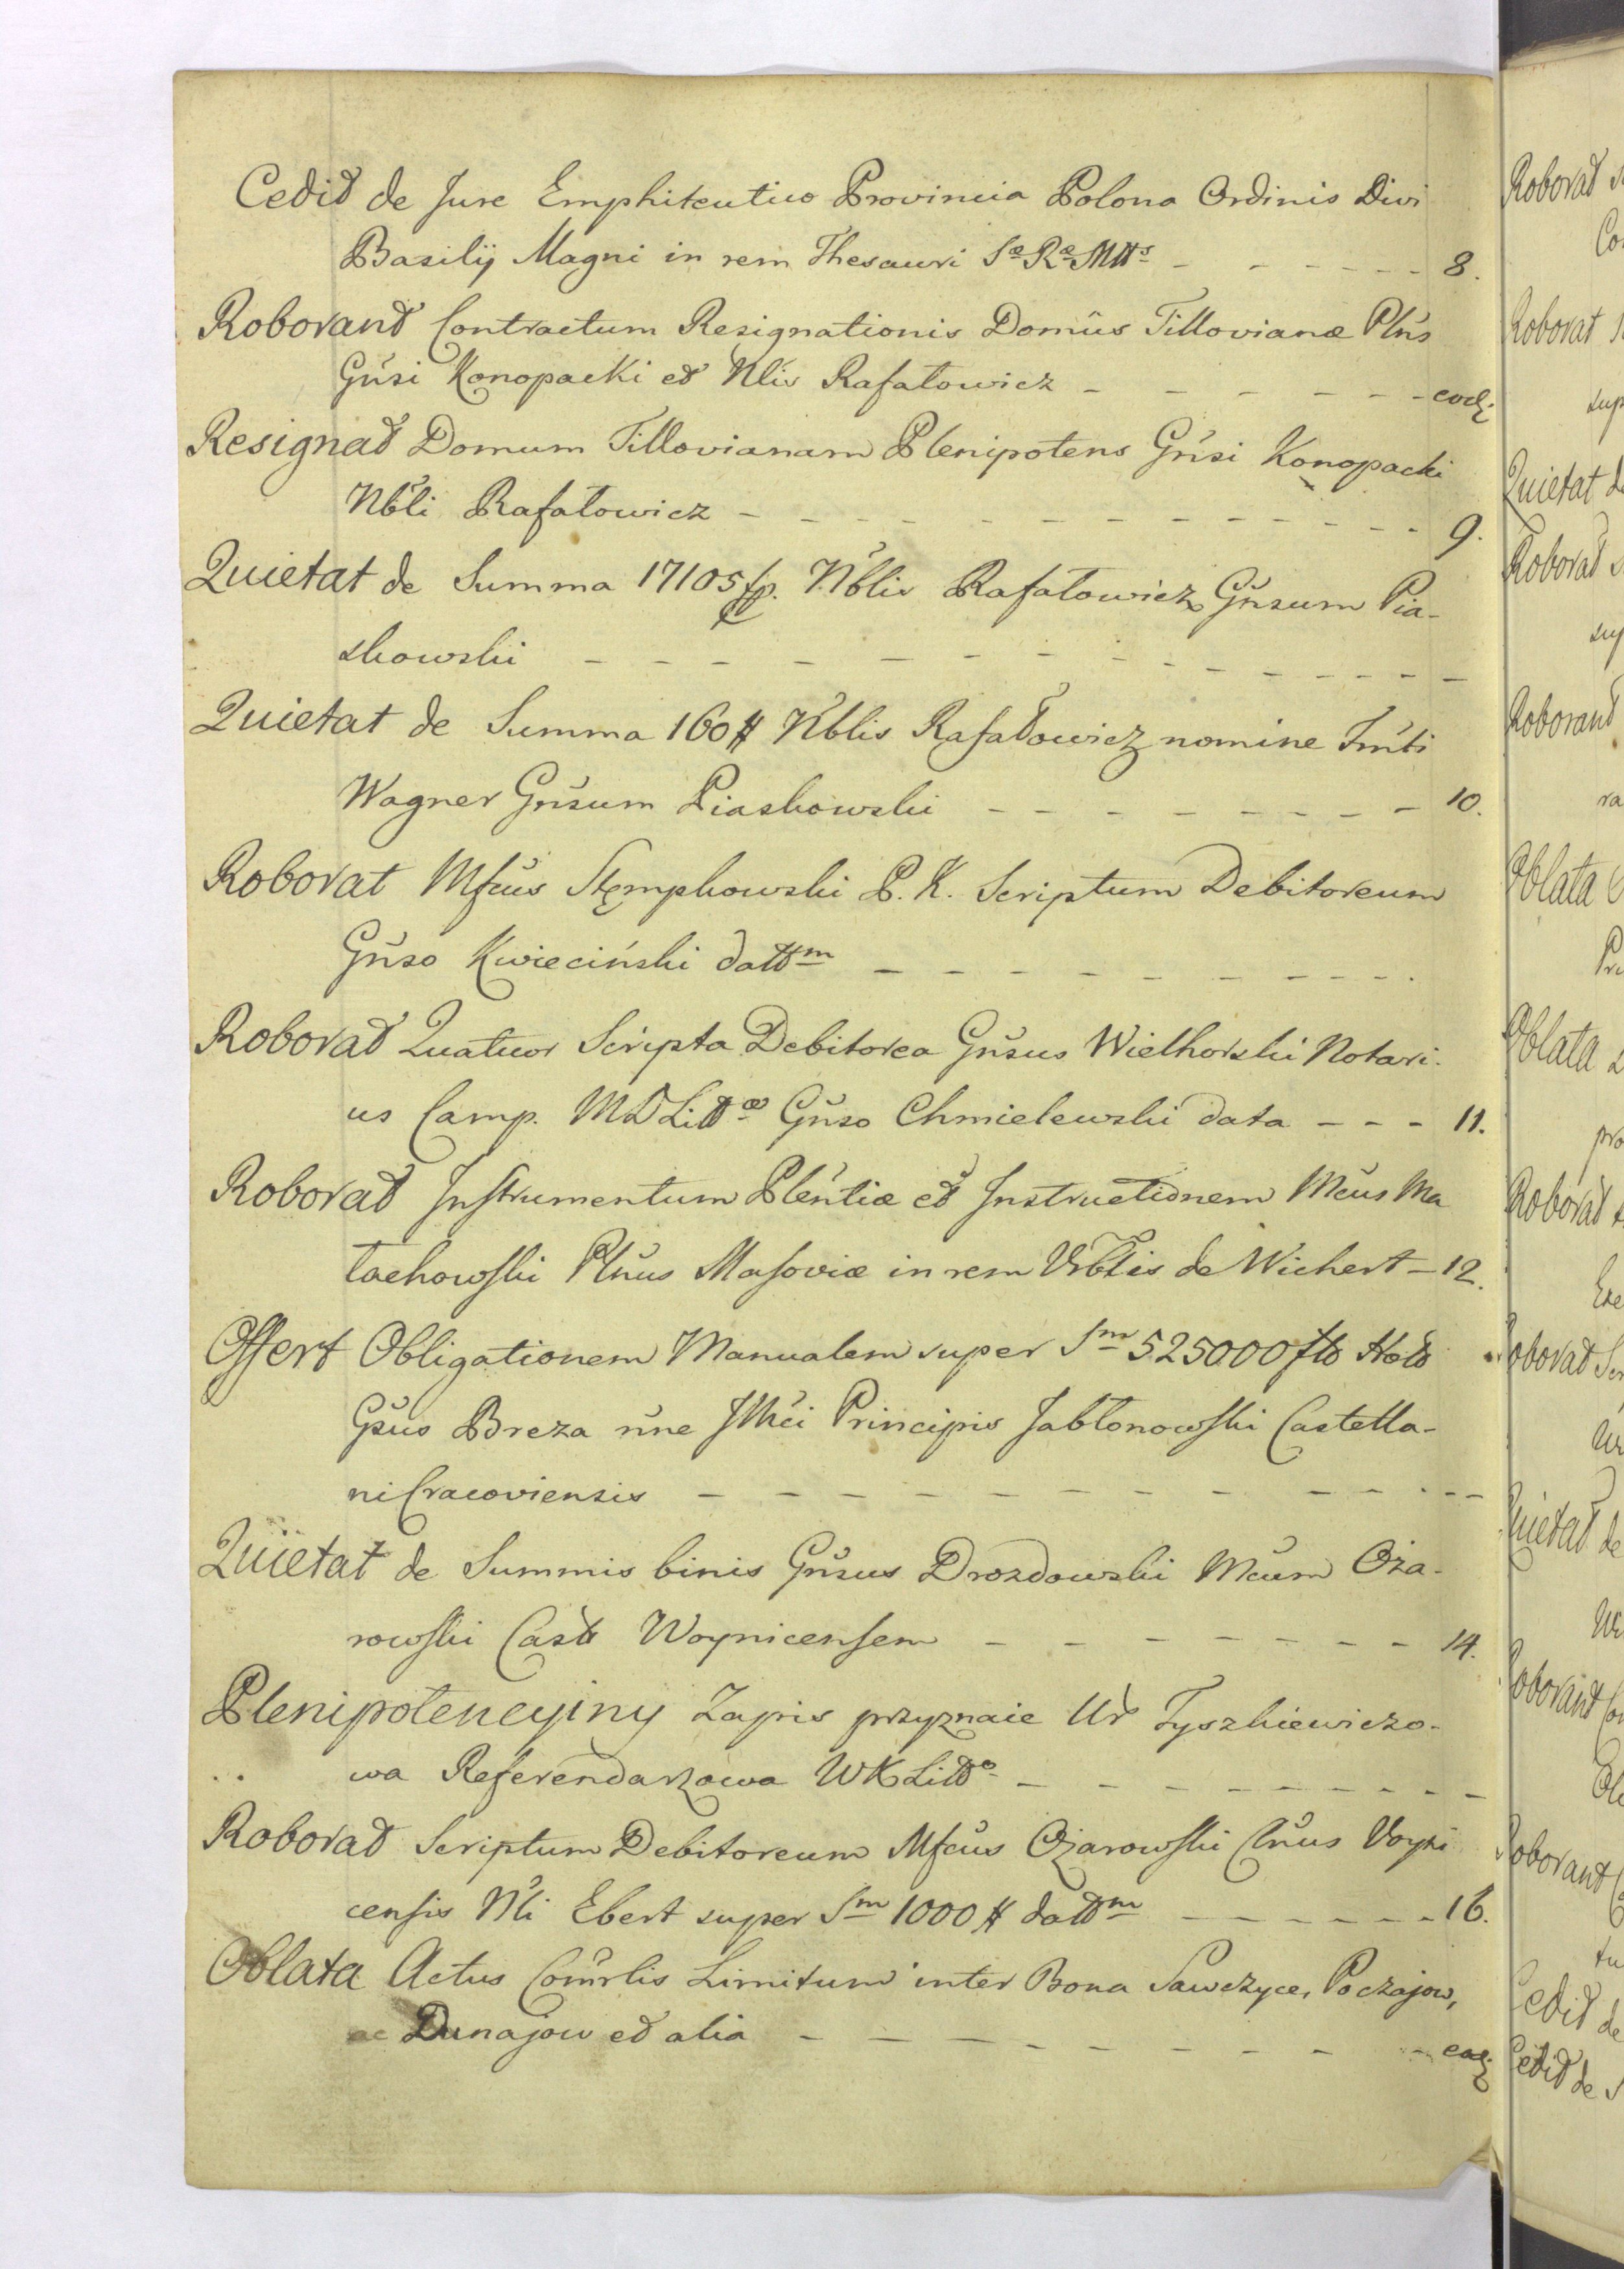 Cedit de Jure Emphiteutico Provincia Polona Ordinis Divi
Basilij Magni in rem Thesauri Sæ Ræ Mtts - - - - - - 8.
Roborant Contractum Resignationis Domus Tillovianæ Plñs
Gñsi Konopacki et Nlis Rafałowicz - - - - - - eod:
Resignat Domum Tillovianam Plenipotens Gñsi Konopacki
Nbli Rafałowicz - - - - - - - - - - - - 9.
Quietat de Summa 17105 fp. Nblis Rafałowicz Gñsum Pia-
skowski - - - - - - - - - - - - - -
Quietat de Summa 160 # Nblis Rafałowicz nomine Fmti
Wagner Gñsum Piaskowski - - - - - - - - 10.
Roborat Mfcus Stęmpkowski P. K. Scriptum Debitoreum
Gñso Kwieciński dattm - - - - - - - - - -
Roborat Quatuor Scripta Debitorea Gñsus Wielhorski Notari-
us Camp. MDLittæ Gñso Chmielewski data - - - 11.
Roborat Instrumentum Pleñtiæ et Instructionem Mcus Ma
łachowski Plnus Masoviæ in rem Urbtis de Wichert - 12.
Offert Obligationem Manualem super Sm 525000 fto Holo
Gsus Breza nñe JMci Principis Jabłonowski Castella-
ni Cracoviensis - - - - - - - - - - - -
Quietat de Summis binis Gñsus Drozdowski Mcum Oża-
rowski Castt Woynicensem - - - - - - - 14.
Plenipotencyiny Zapis przyznaie Ur Tyszkiewiczo-
wa Referendarzowa WKLitto - - - - - - - - -
Roborat Scriptum Debitoreum Mfcus Ożarowski Clnus Voyni
censis Nli Ebert super Sm 1000 # dattm - - - - - - 16.
Oblata Actus Comrlis Limitum inter Bona Sawczyce, Poczajow,
ac Dunajow et alia - - - - - - - - - eod: